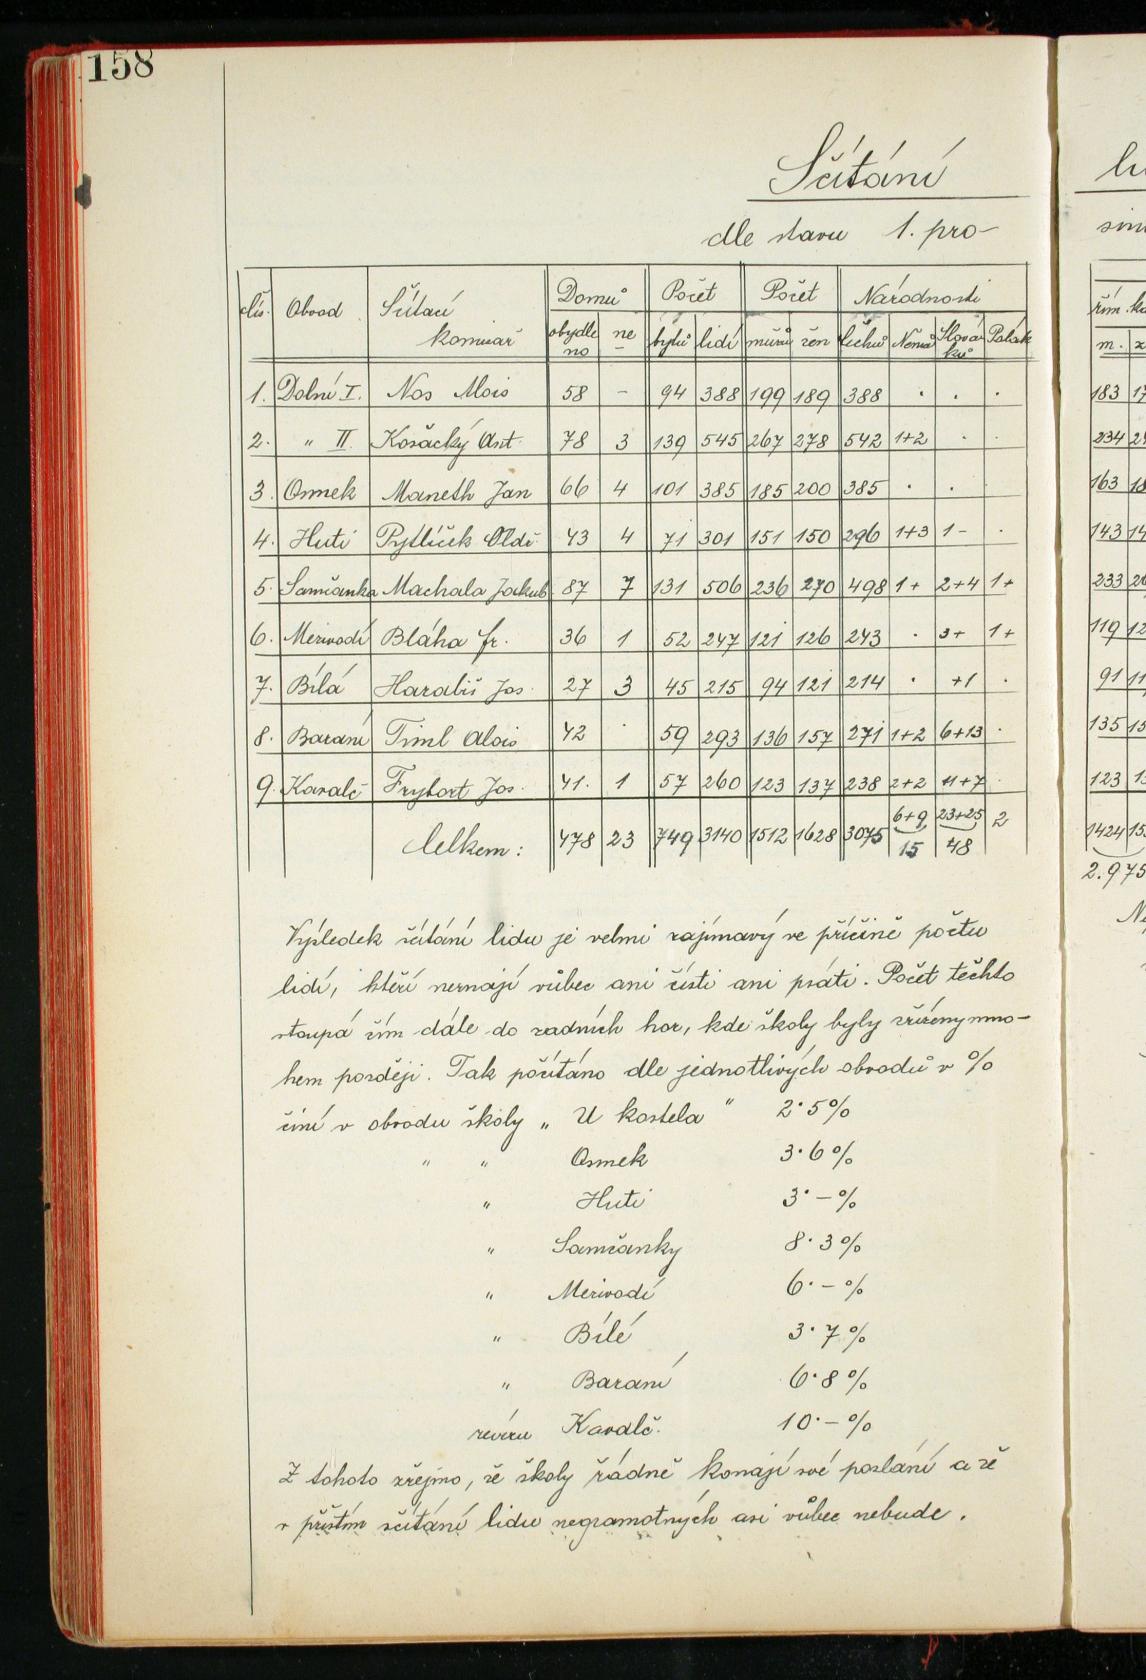 158
Sčítání
dle stavu 1. pro-
Čís. Obvod Sčítací komisař Domů Počet Počet Národnosti
obydleno ne bytů lidí mužů žen Čechů Němců Slováků Polák
1. Dolní I. Nos Alois 58 – 94 388 199 189 388 . . .
2. " II. Kosăcký Ant. 78 3 139 545 267 278 542 1+2 . .
3. Osmek Maneth Jan 66 4 101 385 185 200 385 . .
4. Huti Pytlíček Oldř. 43 4 71 301 151 150 296 1+3 1 - .
5. Samčanka Machala Jakub 87 7 131 506 236 270 498 1+ 2+4 1+
6. Mezivodí Bláha Fr. 36 1 52 247 121 126 243 . 3+ 1+
7. Bílá Harališ Jos. 27 3 45 215 94 121 214 . +1 .
8. Baraní Timl Alois 42 . 59 293 136 157 271 1+2 6+13 .
9. Kavalč Frybort Jos. 41. 1 57 260 123 137 238 2+2 11+7 .
Celkem: 478 23 749 3140 1512 1628 3075 6+9 23+25 2
15 48
Výsledek sčítání lidu je velmi zajímavý ve příčině počtu
lidí, kteří neznají vůbec ani čísti ani psáti. Počet těchto
stoupá čím dále do zadních hor, kde školy byly zřízeny mno-
hem později. Tak počítáno dle jednotlivých obvodů v %
činí v obvodu školy „ U kostela " 2·5%
" " Osmek 3·6%
" Huti 3·–%
" Samčanky 8·3%
" Mezivodí 6·–%
" Bílé 3·7%
" Baraní 6·8%
revíru Kavalč. 10·–%
Z tohoto zřejmo, že školy řádně konají své poslání a že
v příštím sčítání lidu negramotných asi vůbec nebude.
lu
řím. ka
m. ž
183 17
234
163 18
143 14
233 26
119 12
91 11
135 15
123 13
1424 15
2.975